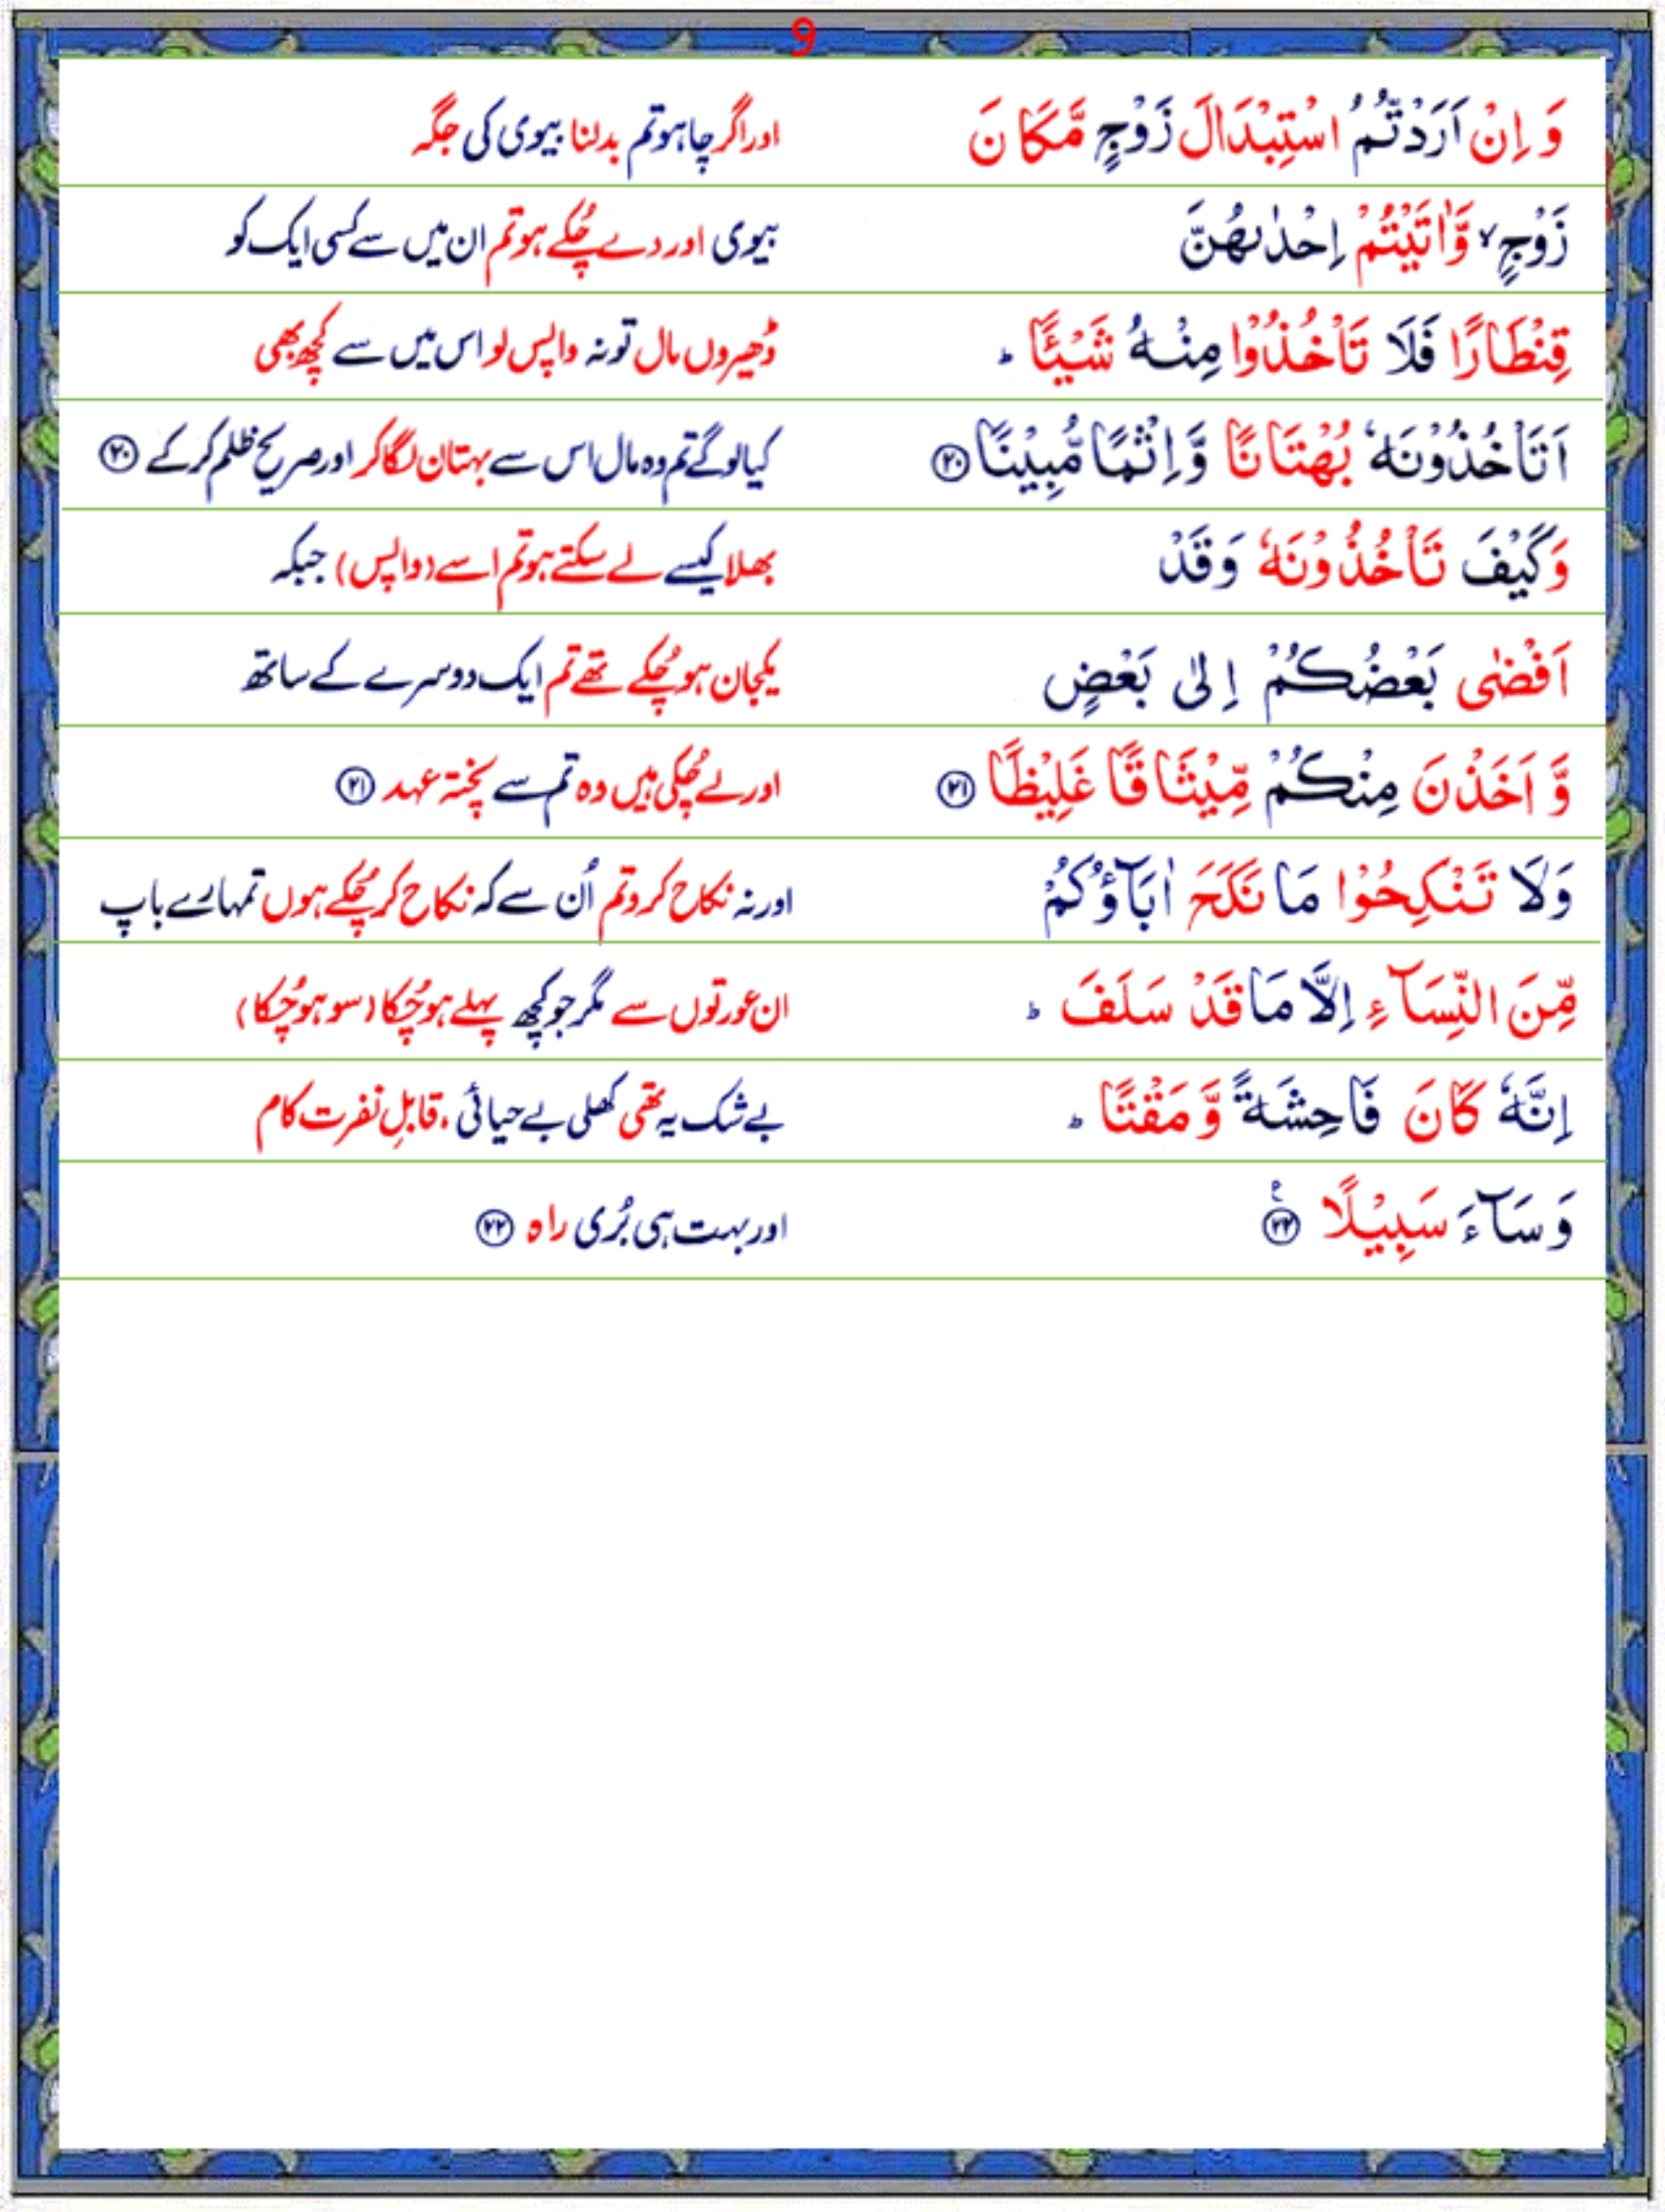 9
وَ اِنْ اَرَدْتُّمُ اسْتِبْدَالَ زَوْجٍ مَّكَانَ
اور اگر چاہو تم بدلنا بیوی کی جگہ
زَوْجٍ ۙ وَّاٰتَيْتُمْ اِحْدٰىهُنَّ
بیوی اور دے چُکے ہو تم ان میں سے کسی ایک کو
قِنْطَارًا فَلَا تَاْخُذُوْا مِنْهُ شَيْئًا ؕ
ڈھیروں مال تو نہ واپس لو اس میں سے کچھ بھی
اَتَاْخُذُوْنَهٗ بُهْتَانًا وَّاِثْمًا مُّبِيْنًا ۝۲۰
کیا لو گے تم وہ مال اس سے بہتان لگا کر اور صریح ظلم کر کے ۝۲۰
وَكَيْفَ تَاْخُذُوْنَهٗ وَقَدْ
بھلا کیسے لے سکتے ہو تم اسے (واپس) جبکہ
اَفْضٰى بَعْضُكُمْ اِلٰى بَعْضٍ
یکجان ہو چُکے تھے تم ایک دوسرے کے ساتھ
وَّ اَخَذْنَ مِنْكُمْ مِّيْثَاقًا غَلِيْظًا ۝۲۱
اور لے چُکی ہیں وہ تم سے پختہ عہد ۝۲۱
وَلَا تَنْكِحُوْا مَا نَكَحَ اٰبَآؤُكُمْ
اور نہ نکاح کرو تم اُن سے کہ نکاح کر چُکے ہوں تمہارے باپ
مِّنَ النِّسَآءِ اِلَّا مَا قَدْ سَلَفَ ؕ
ان عورتوں سے مگر جو کچھ پہلے ہو چُکا (سو ہو چُکا)
اِنَّهٗ كَانَ فَاحِشَةً وَّ مَقْتًا ؕ
بے شک یہ تھی کھلی بے حیائی، قابلِ نفرت کام
وَسَآءَ سَبِيْلًا ۝۲۲ ع
اور بہت ہی بُری راہ ۝۲۲